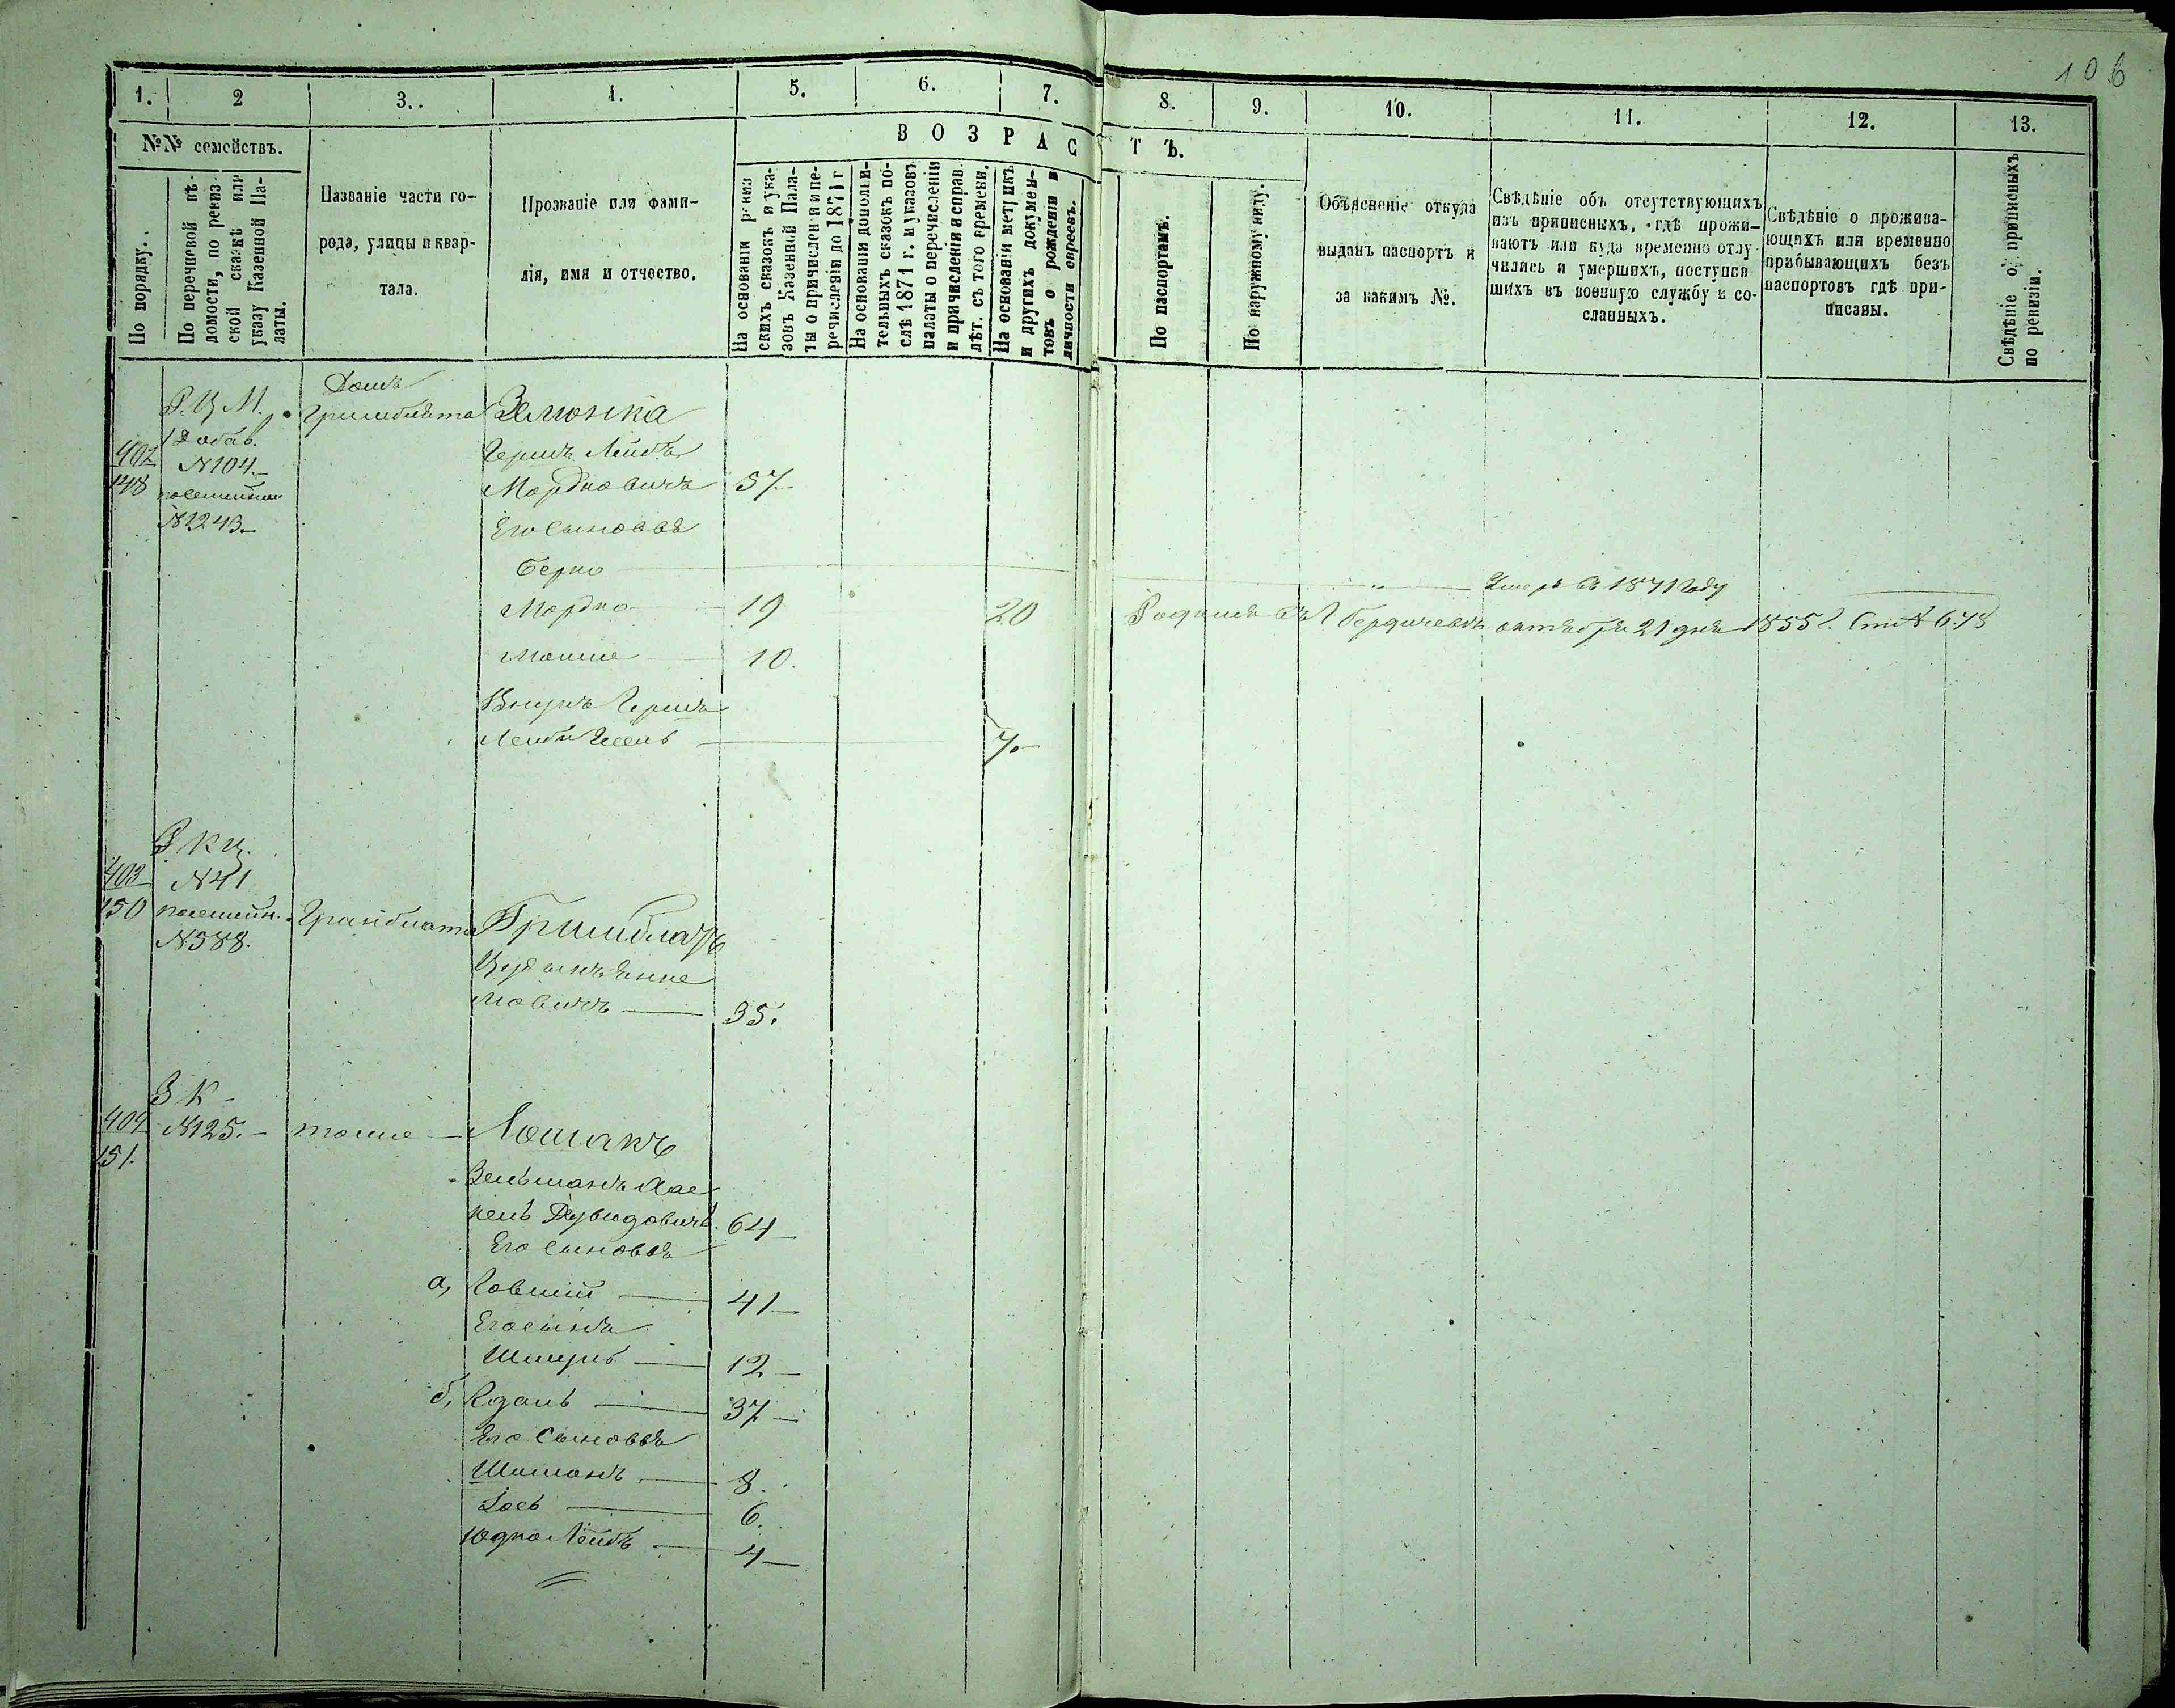 106
1. 2 3. 4. 5. 6. 7. 8. 9. 10. 11. 12. 13.
№№ семействъ.
По порядку.
По перечневой вѣ-
домости, по ревиз
ской сказкѣ или
указу Казенной Па-
латы.
Названіе части го-
рода, улицы и квар-
тала.
Прозваніе или фами-
лія, имя и отчество.
ВОЗРАСТЪ.
На основаніи ревиз
скихъ сказокъ и ука-
зовъ Казенной Пала-
ты о причисленіи и пе-
речисленіи до 1871 г
На основаніи дополни-
тельныхъ сказокъ по-
слѣ 1871 г. и указовъ
палаты о перечисленіи
и причисленіи и справ.
лѣт. съ того времени.
На основаніи метрикъ
и другихъ докумен-
товъ о рожденіи и
личности евреевъ.
По паспортамъ.
По наружному виду.
Объясненіе откуда
выданъ паспортъ и
за какимъ №.
Свѣдѣніе объ отсутствующихъ
изъ приписныхъ, гдѣ прожи-
ваютъ или куда временно отлу-
чились и умершихъ, поступив
шихъ въ военную службу и со-
сланныхъ.
Свѣдѣніе о прожива-
ющихъ или временно
прибывающихъ безъ
паспортовъ гдѣ при-
писаны.
Свѣдѣніе о приписныхъ
по ревизіи.
Домъ
Р. Ц М. Гринблята
1 Добав.
402 N 104
148 посемейн.
N 1243
Зелюнка
Гершъ Лейбъ
Мордковичъ 57
Его сыновья
Берко Умеръ въ 1871 году
Мордко 19 20 Родился въ г Бердичевѣ октября 21 дня 1855 г. Ст № 678
Мошке 10.
Внукъ Гершъ
Лейби 7.
Р К Ц.
403 N 41
150 посемейн. Гринблата Гринблатъ
N 588.
35.
З К
404 N 125. тоже Лошакъ
151.
Зельманъ Хас
кель Дувидовичъ. 64
Его сыновья
а, Ковший 41
Его сынъ
Шмуль 12
б, 37
Его сыновья
Шимонъ 8.
Іось 6.
Юдко Лейбъ 4